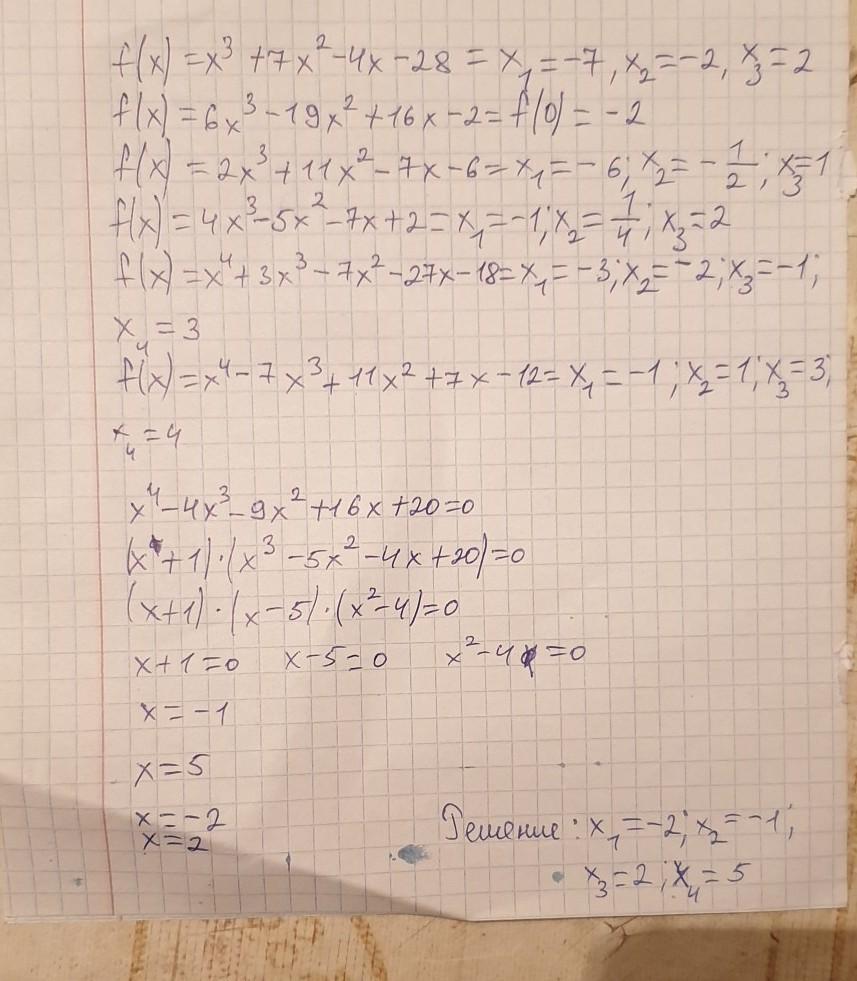 f(x) = x³ + 7x² - 4x - 28 = x₁ = -7, x₂ = -2, x₃ = 2
f(x) = 6x³ - 19x² + 16x - 2 = f(0) = -2
f(x) = 2x³ + 11x² - 7x - 6 = x₁ = -6; x₂ = -1/2; x₃ = 1
f(x) = 4x³ - 5x² - 7x + 2 = x₁ = -1; x₂ = 1/4; x₃ = 2
f(x) = x⁴ + 3x³ - 7x² - 27x - 18 = x₁ = -3; x₂ = -2; x₃ = -1;
x₄ = 3
f(x) = x⁴ - 7x³ + 11x² + 7x - 12 = x₁ = -1; x₂ = 1; x₃ = 3;
x₄ = 4
x⁴ - 4x³ - 9x² + 16x + 20 = 0
(x + 1) · (x³ - 5x² - 4x + 20) = 0
(x + 1) · (x - 5) · (x² - 4) = 0
x + 1 = 0 x - 5 = 0 x² - 4 = 0
x = -1
x = 5
x = -2
x = 2
Решение: x₁ = -2; x₂ = -1;
x₃ = 2; x₄ = 5